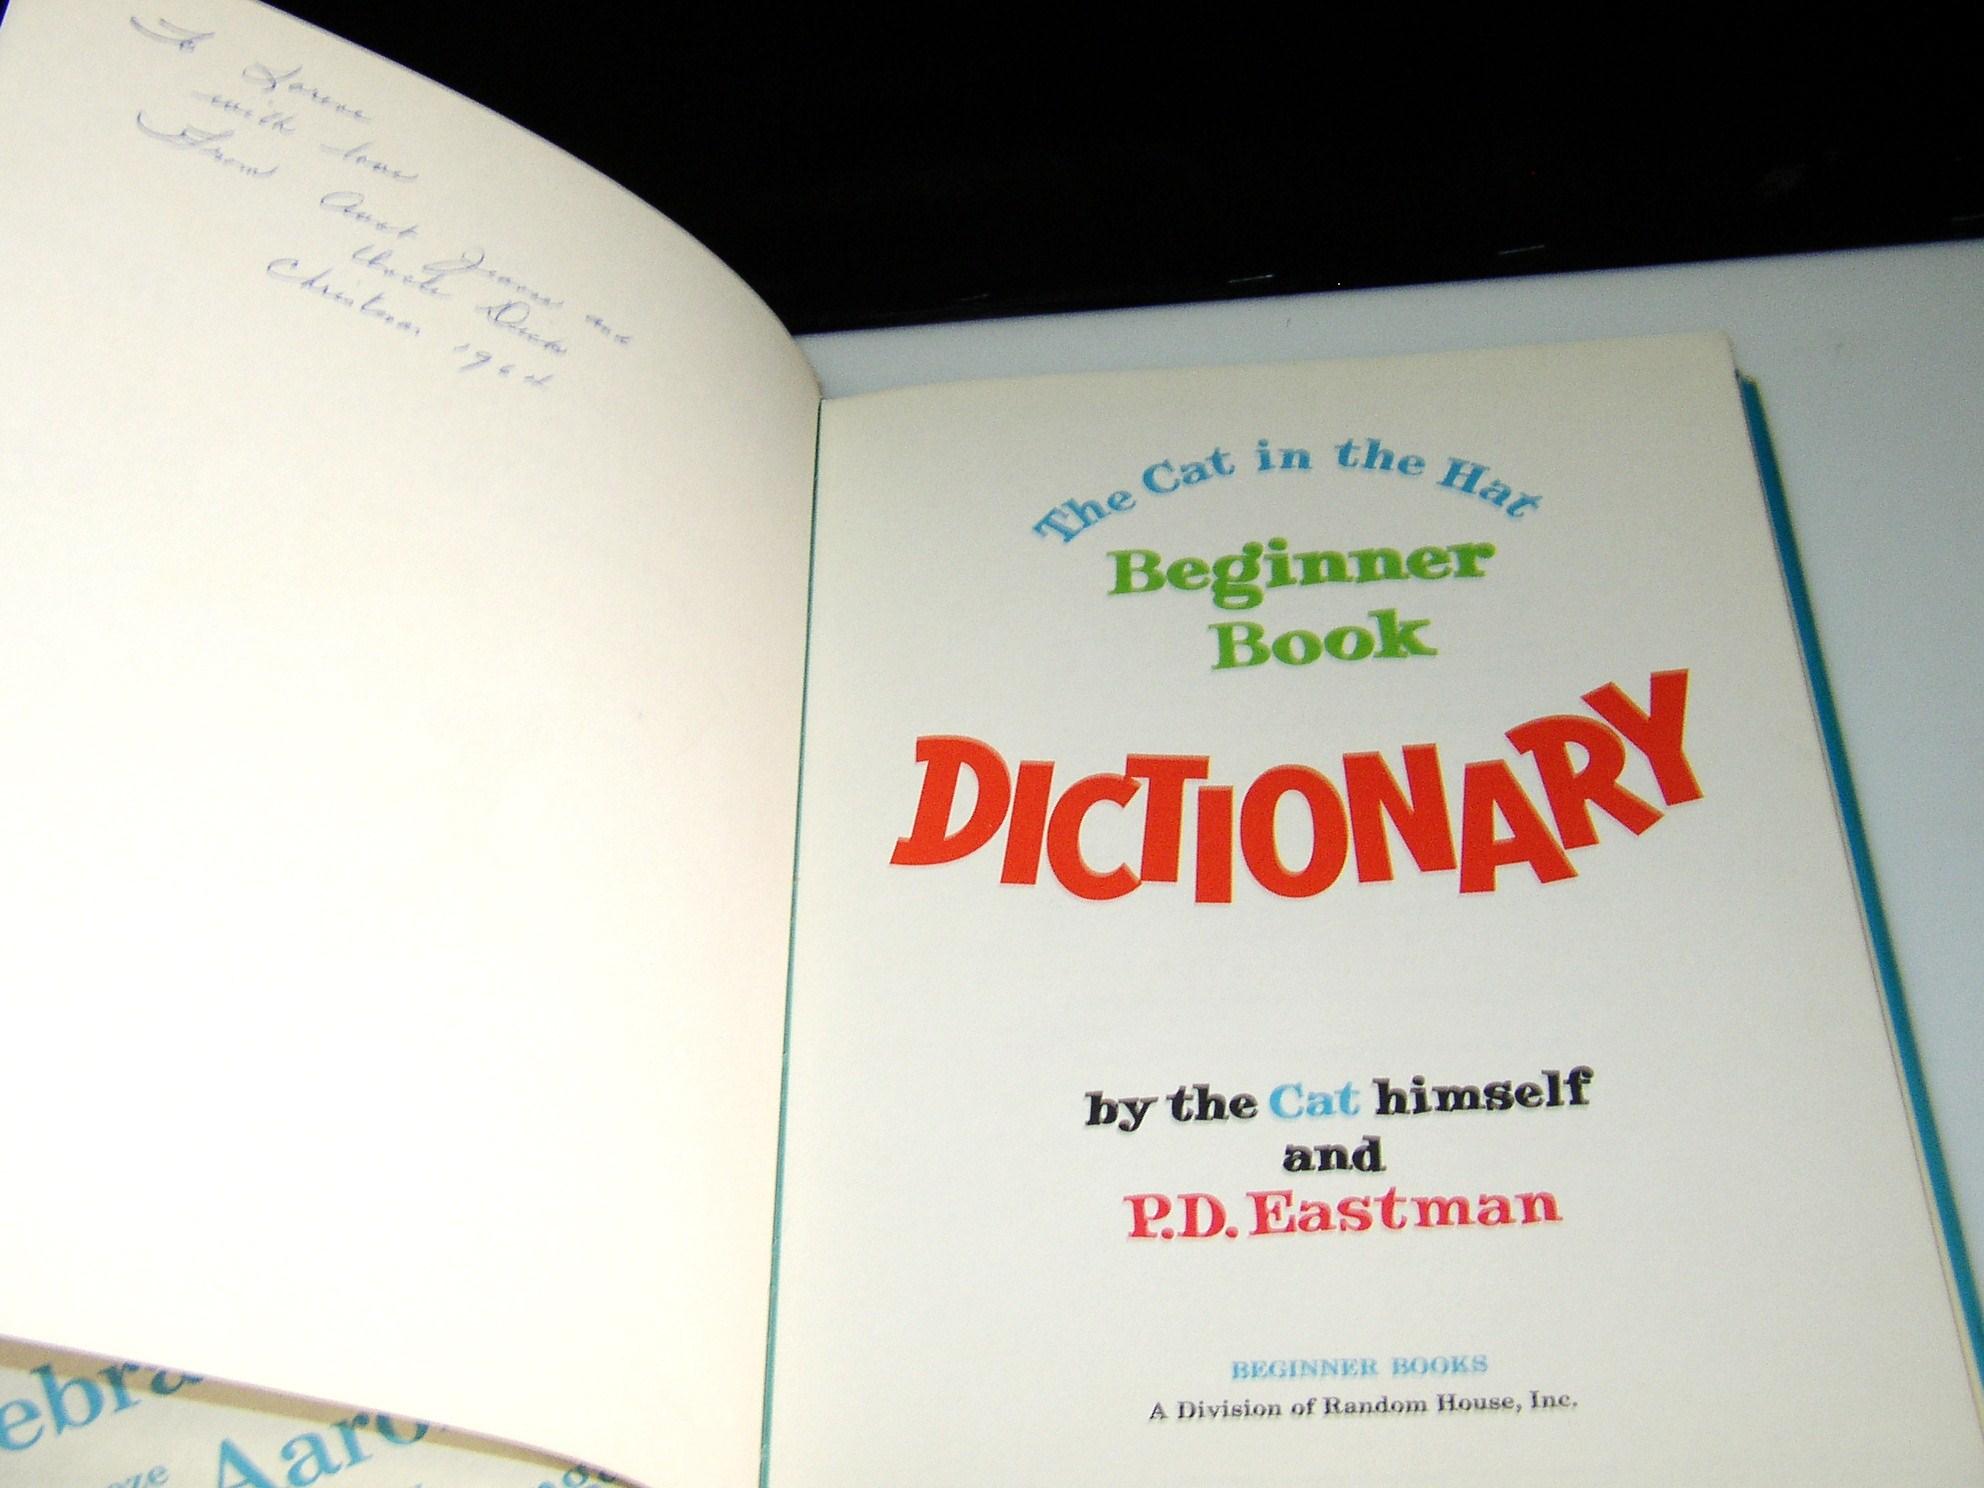 To Loree
with love
From Aunt Jean and
Uncle Dick
Christmas 1964
The Cat in the Hat
Beginner
Book
DICTIONARY
by the Cat himself
and
P.D. Eastman
BEGINNER BOOKS
A Division of Random House, Inc.
ebra
Aaro